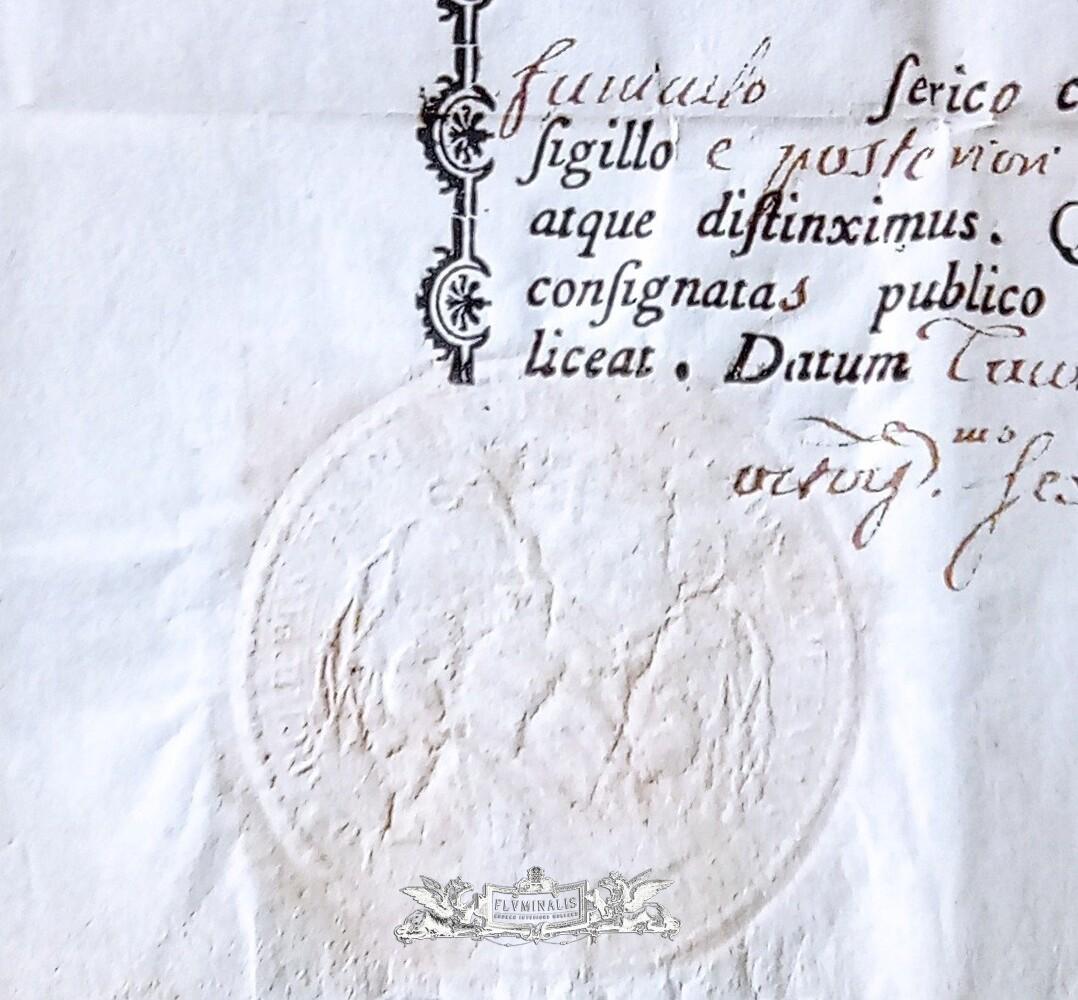 funiculo ſerico c
ſigillo e posteriori
atque diſtinximus. Q
conſignatas publico
liceat. Datum
FLVMINALIS